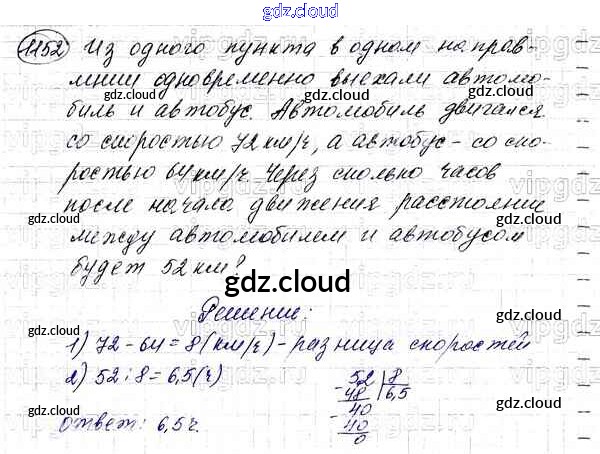 gdz.cloud
1152) Из одного пункта в одном направ-
лении одновременно выехали автомо-
биль и автобус. Автомобиль двигался
со скоростью 72 км/ч, а автобус - со ско-
ростью 64 км/ч. Через сколько часов
после начала движения расстояние
между автомобилем и автобусом
будет 52 км?
gdz.cloud
Решение:
1) 72 - 64 = 8 (км/ч) - разница скоростей
2) 52 : 8 = 6,5 (ч)
52 | 8
- 48 | 6,5
40
- 40
0
ответ: 6,5 ч.